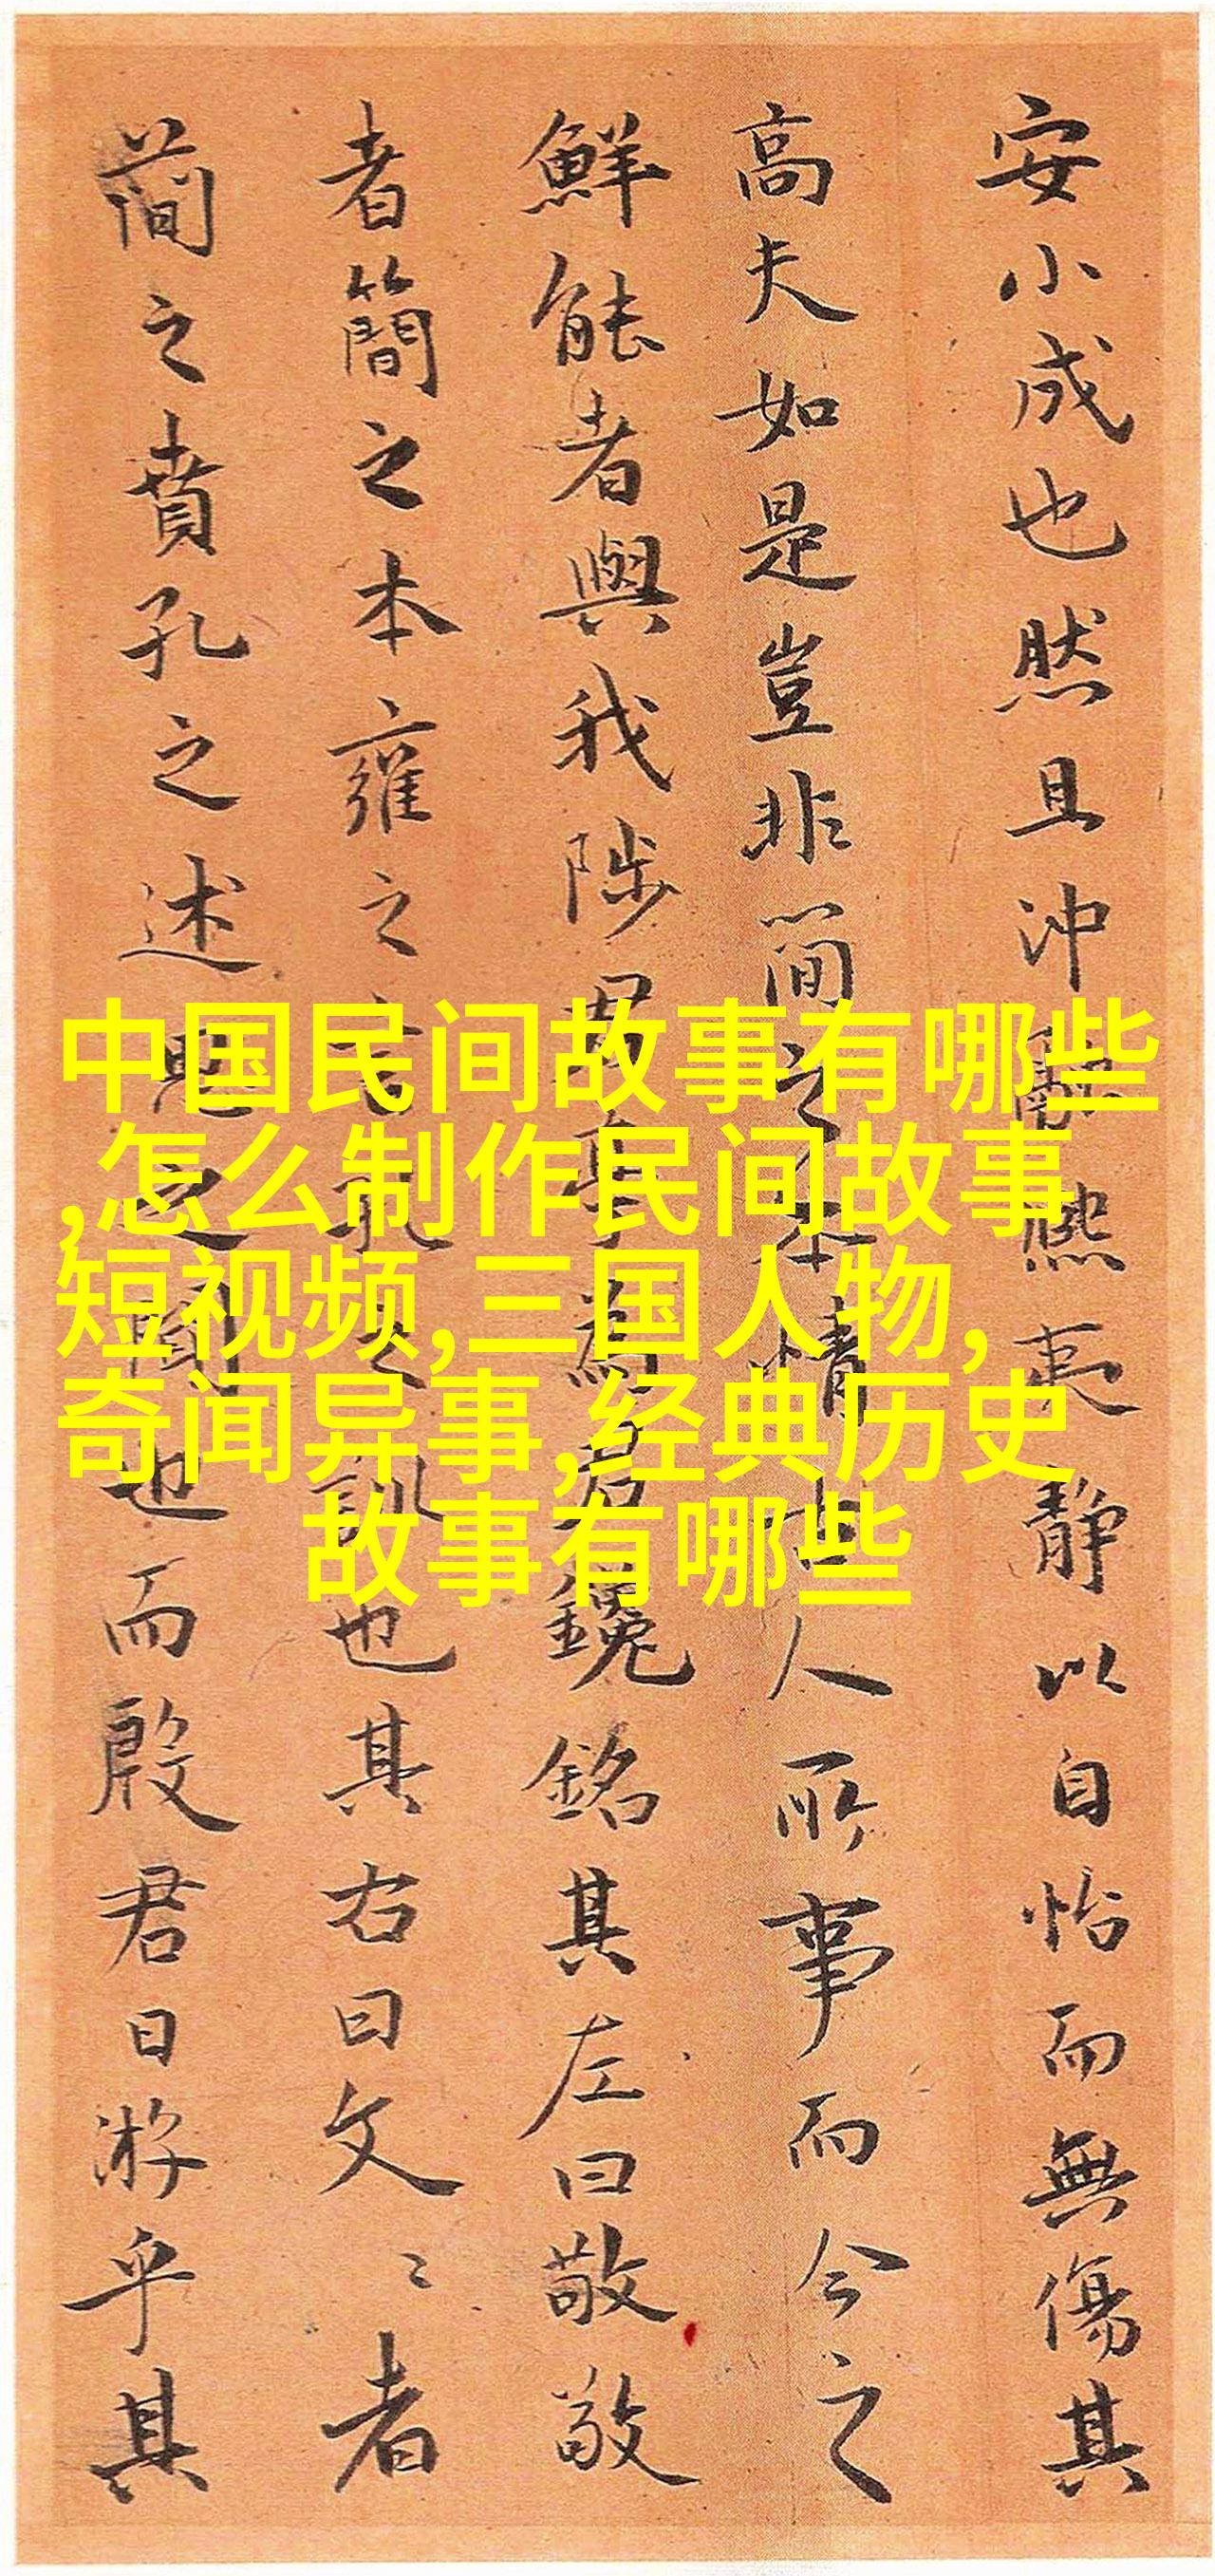 安小成也然且沖熙夷静以自怡而無傷其
高夫如是豈非簡之本情人所事而今之
鮮能者與我陟為君鑱銘其左曰敬敬
者簡之本雍之言孔之訓也其右曰文〻者
簡之賁孔之述思之聞也而殷君日游乎其
中国民间故事有哪些
,怎么制作民间故事
短视频,三国人物,
奇闻异事,经典历史
故事有哪些